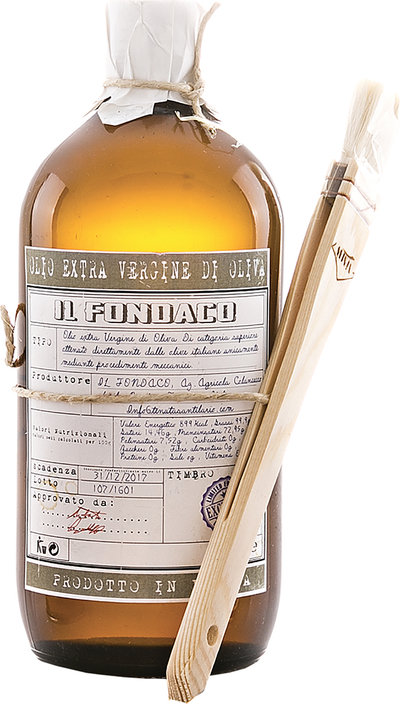 OLIO EXTRA VERGINE DI OLIVA
IL FONDACO
TIPO
Olio extra Vergine di Oliva Di categoria superiore
ottenuto direttamente dalle olive italiane unicamente
mediante procedimenti meccanici
Produttore
IL FONDACO, Az. Agricola
Info@tenutasantilario.com
Valori Nutrizionali
Valori medi calcolati per 100g
Valore Energetico 899 kcal, Grassi 99,9
Saturi 14,46g, Monoinsaturi 72,95g
Polinsaturi 7,52g, Carboidrati 0g
Zuccheri 0g, Fibre alimentari 0g
Proteine 0g, Sale 0g, Vitamina
Scadenza
31/12/2017
TIMBRO
Lotto
107/1601
Approvato da:
PRODOTTO IN